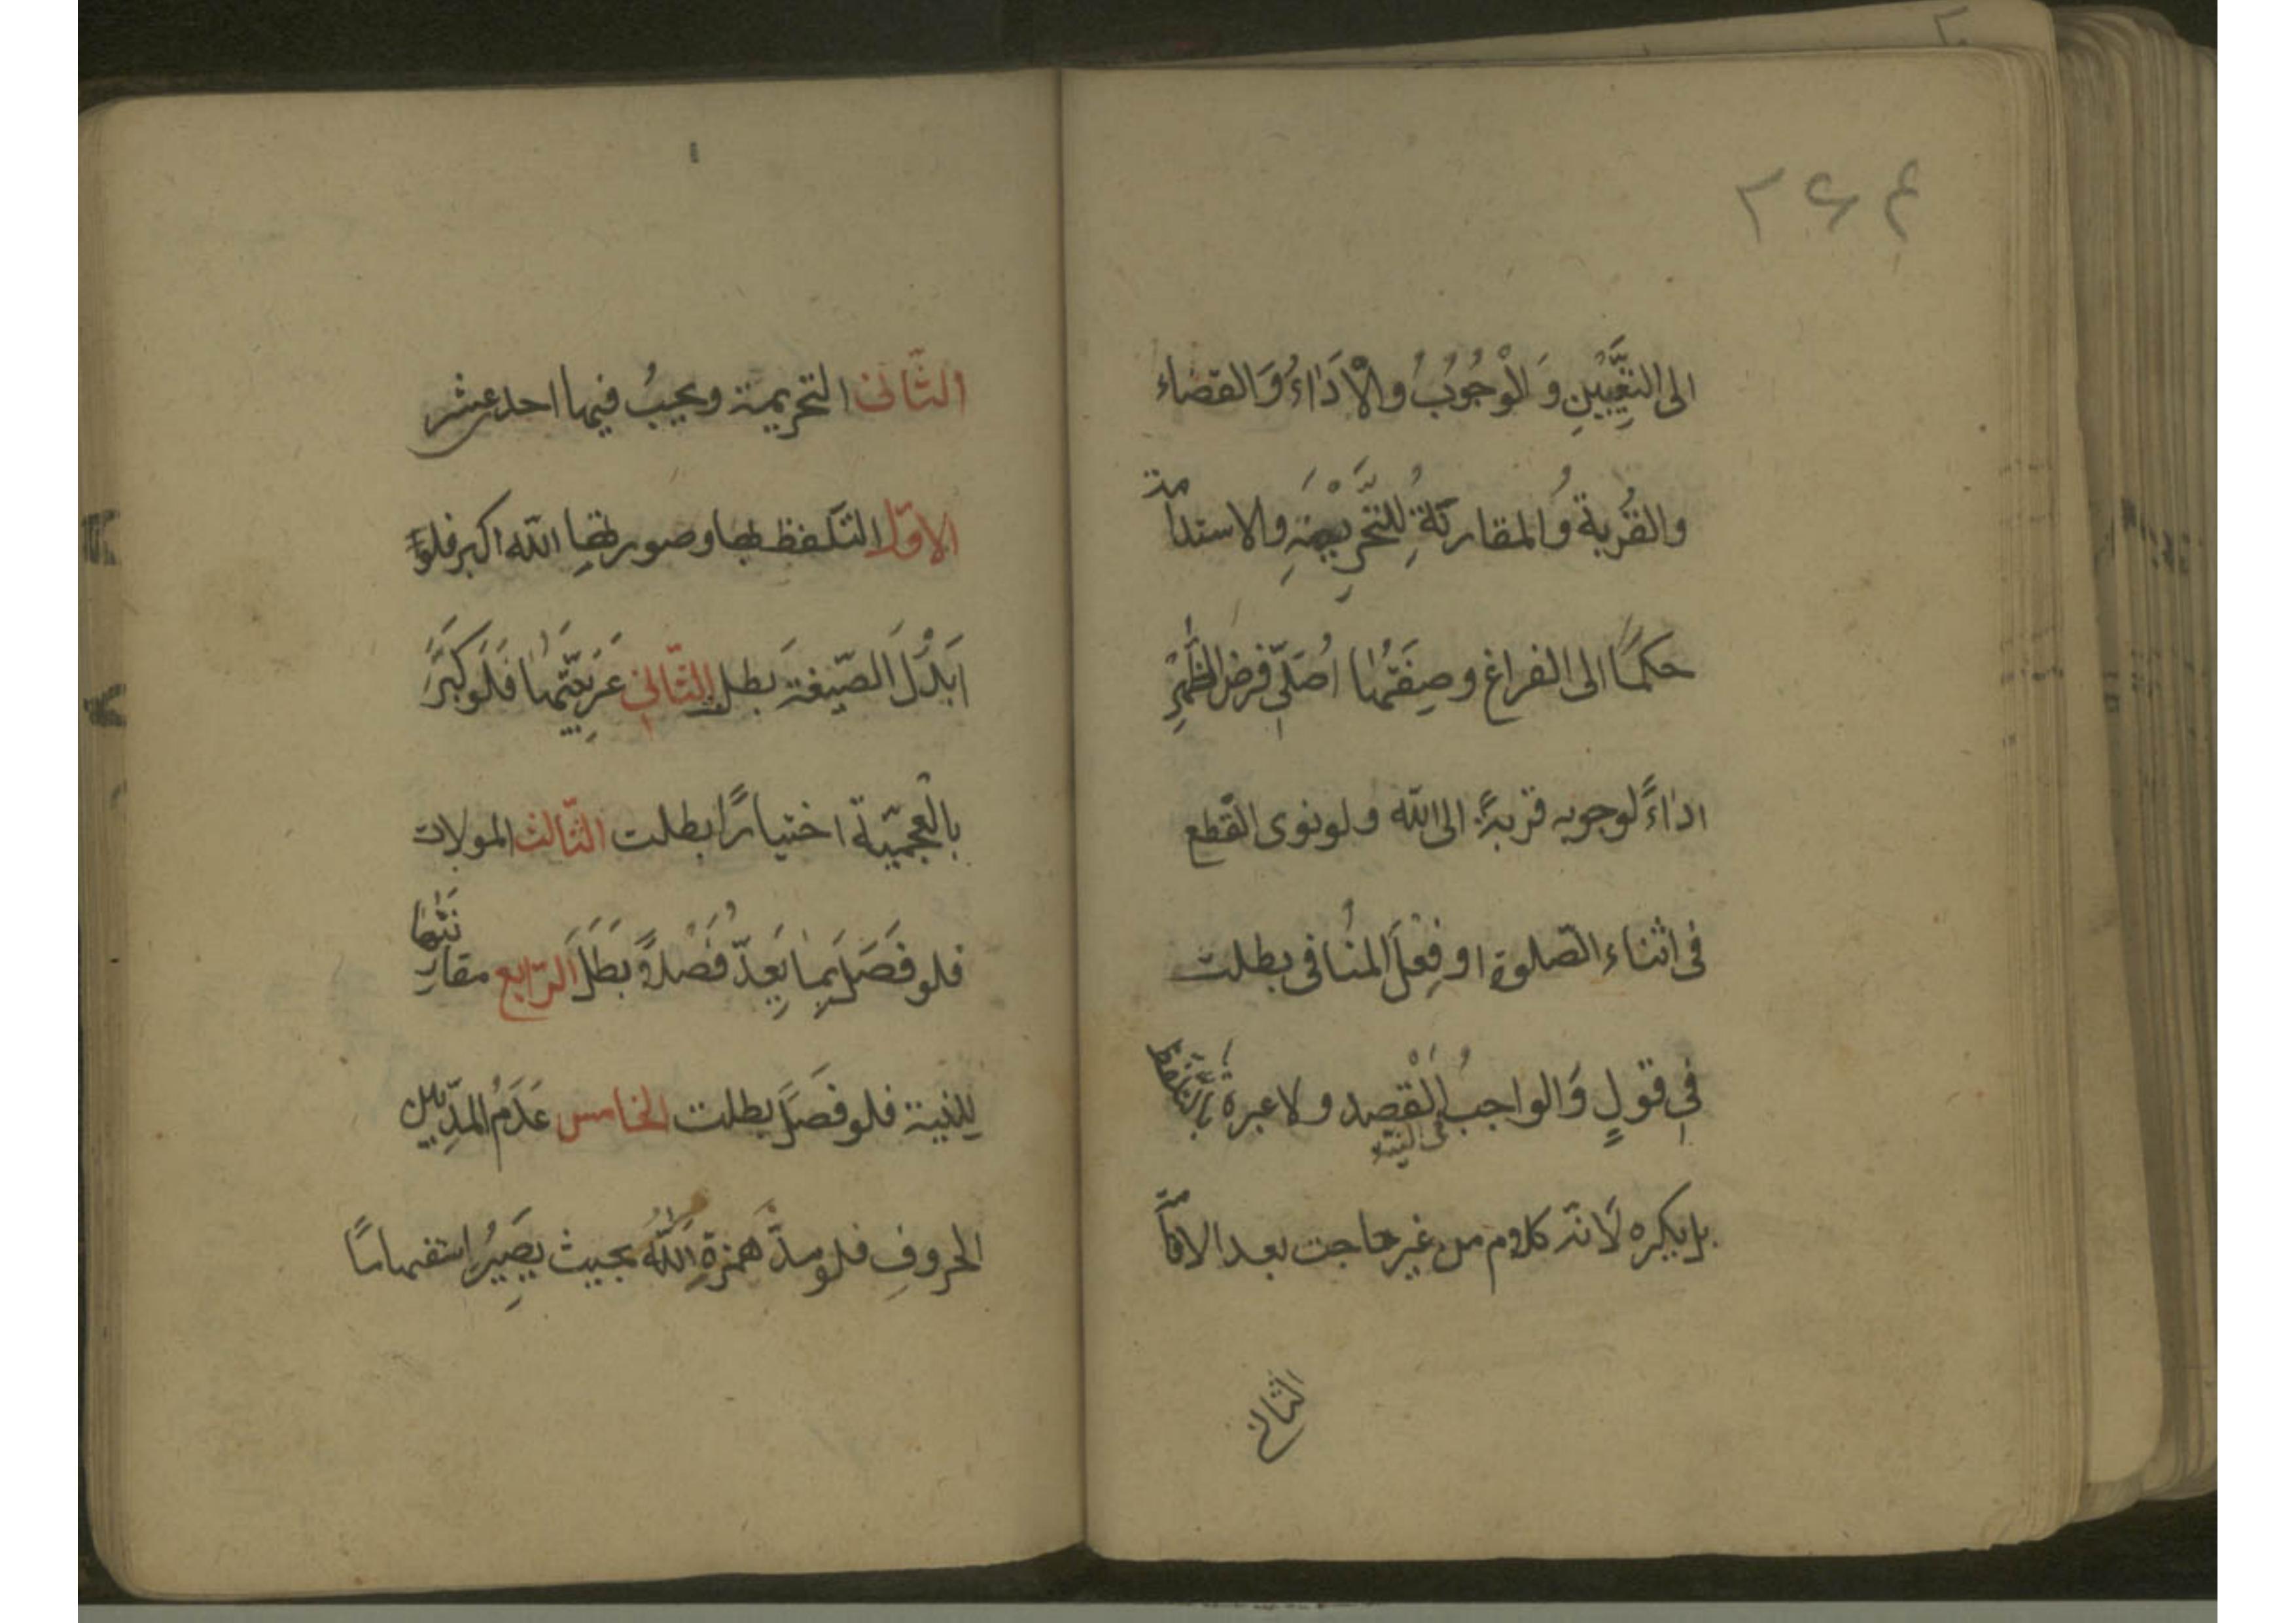 ۲۶۴
الى التعيين وَ الوُجُوبُ والْاَدَاءُ وَالقضاء
والقُربة وُالمقارنةُ لِلتَّحْرِيمَةِ والاستدامة
حكمًا الى الفراغ وصِفَتُها اُصَلّى فرض الظُّهرِ
اداءً لوجوبه قربةً الى الله ولو نوى القطع
فى اثناء الصّلوة او فِعْلَ المُنافى بطلت
فى قولٍ وَالواجبُ الْقَصد ولا عبرة بِالتّلَفّظ
فى النيّة
بل يكره لَانّه كلام من غير حاجت بعد الاقامة
الثانى
الثّانى التحريمة ويجبُ فيها احد عشر
الاوّل التلفظ بها وصورتها الله اكبر فلو
اَبَدْلَ الصّيغةَ بطل الثّانى عَرَبيّتها فَلَو كَبَّرَ
بالْعجميّة اختيارًا بطلت الثّالث المولات
فلو فَصَلَ بما يَعِدّ فَصْلًا بَطَلَ الرّابع مقارنتها
للنية فلو فصَلَ بطلت الخامس عَدَمُ المدّ بين
الحروفِ فلو مدّ همزةِ اَللّٰه بحيث يصِيرُ استفهامًا